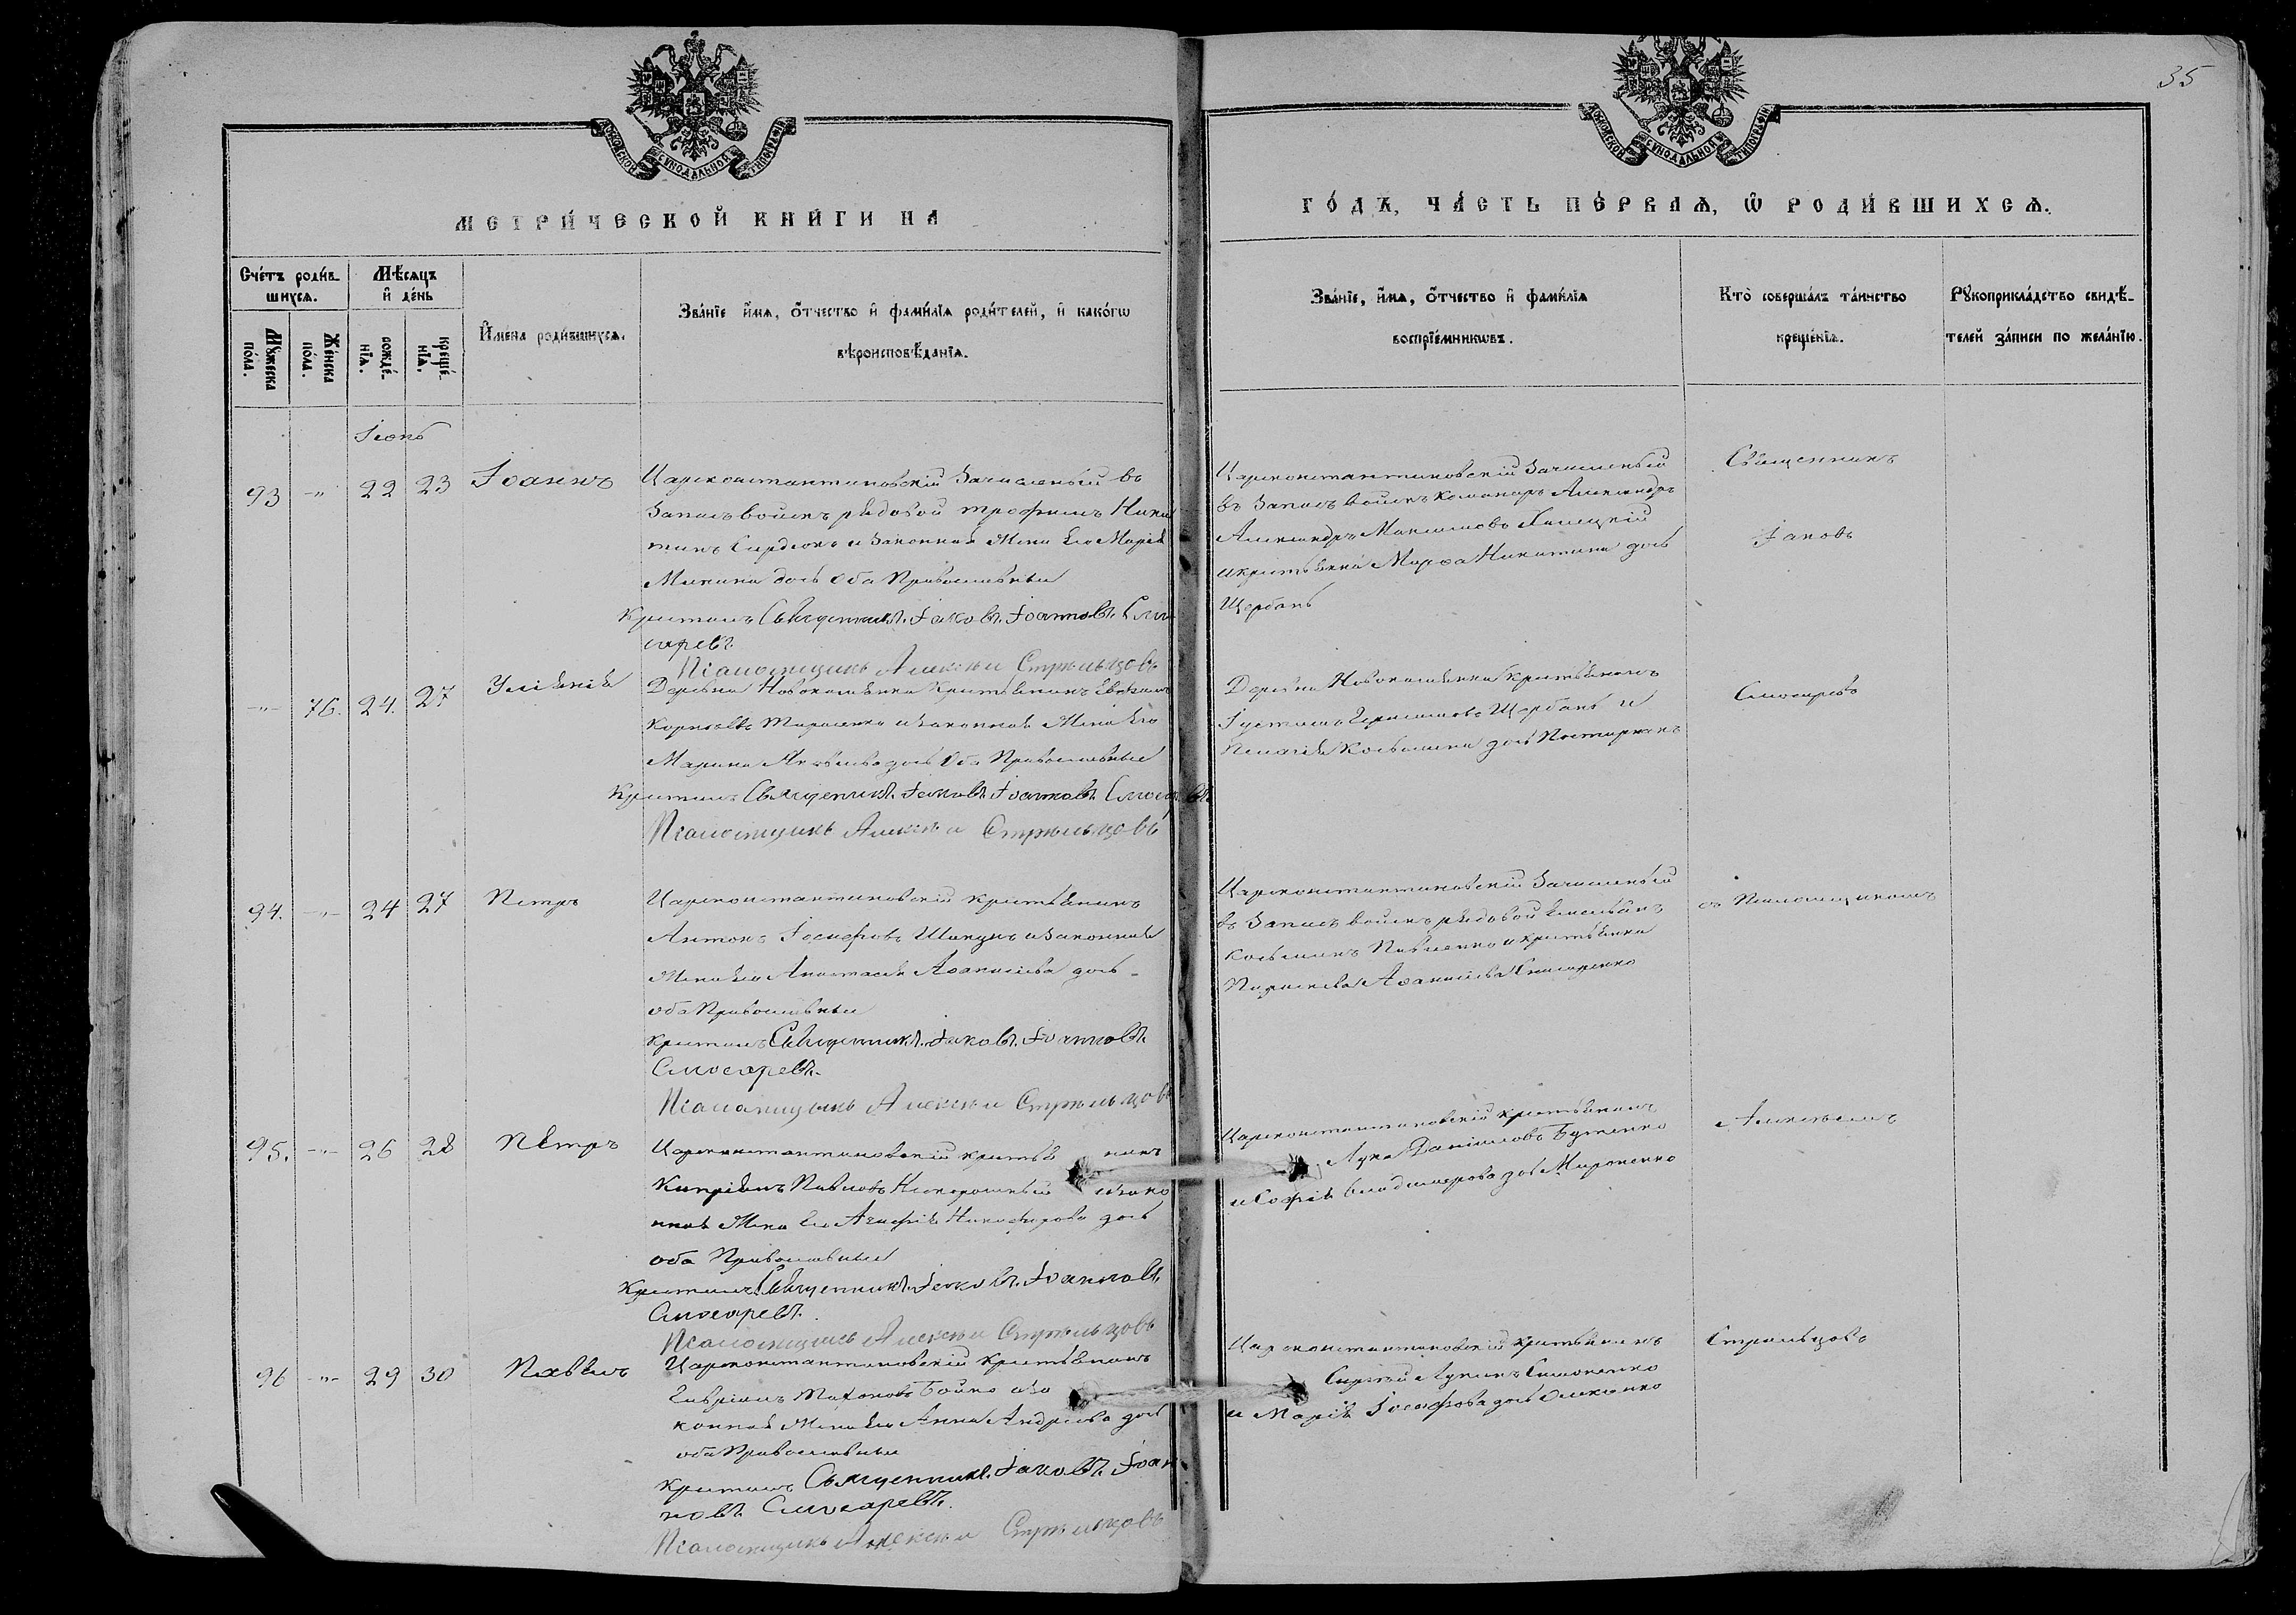 35
МОСКОВСКОЙ СѴНОДАЛЬНОЙ ТИПОГРАФІИ
МОСКОВСКОЙ СѴНОДАЛЬНОЙ ТИПОГРАФІИ
МЕТРИ́ЧЕСКОЙ КНИ́ГИ НА
ГО́ДЪ, ЧА́СТЬ ПЕ́РВАѦ, Ѡ РОДИ́ВШИХСѦ.
Сче́тъ роди́в-
шихсѧ.
Мꙋ́жеска по́ла.
Же́нска по́ла.
Мѣ́сѧцъ
и҆ де́нь
рожде́-
нїѧ.
креще́-
нїѧ.
И҆мена̀ роди́вшихсѧ.
Зва́нїе и҆́мѧ, ѻ҆́тчество и҆ фами́лїѧ роди́телей, и҆ како́гѡ
вѣроисповѣ́данїѧ.
Зва́нїе, и҆́мѧ, ѻ҆́тчество и҆ фами́лїѧ
воспрїе́мникѡвъ.
Кто̀ соверша́лъ та́инство
креще́нїѧ.
Рꙋкоприкла́дство свидѣ́-
телей за́писи по жела́нїю.
Іюнь
93 -"- 22 23 Іоаннъ
Цареконстантиновскій Зачисленый въ
Запасъ войскъ рядовой Трофимъ Ники
тинъ Сердюкъ и законная Жена Его Марія
Минина дочь Оба Православные
Крестилъ Священникъ Іаковъ Іоанновъ Слю
саревъ
Псаломщикъ Алексѣй Стрѣльцовъ
Цареконстантиновскій Зачисленый
въ Запасъ войскъ
Александръ Максимовъ
и крестьянка Марѳа Никитина дочь
Щербань
Священникъ
Іаковъ
-"- 76. 24. 27 Уліянія
Деревни Новоселовки Крестьянинъ
Марина Яковлева дочь Оба Православные
Крестилъ Священникъ Іаковъ Іоанновъ Слюсаревъ
Псаломщикъ Алексѣй Стрѣльцовъ
Деревни крестьянинъ
Іустинъ Герасимовъ Щербань и
Пелагія Косьмина дочь
Слюсаревъ
94. -"- 24 27 Петръ
Цареконстантиновскій крестьянинъ
Антонъ Іосифовъ и законная
Жена Его Анастасія Аѳанасіева дочь
оба Православные
Крестилъ Священникъ Іаковъ Іоанновъ
Слюсаревъ
Псаломщикъ Алексѣй Стрѣльцовъ
Цареконстантиновскій Зачисленый
въ Запасъ войскъ рядовой Емельянъ
Косьминъ Павленко и крестьянка
Параскева Аѳанасіева
съ Псаломщикомъ
95. -"- 26 28 Пётръ
Цареконстантиновскій крестья нинъ
Кипріянъ Павловъ и зако
нная Жена Его Агафія Никифорова дочь
оба Православные
Крестилъ Священникъ Іаковъ Іоанновъ
Слюсаревъ
Псаломщикъ Алексѣй Стрѣльцовъ
Цареконстантиновскій крестьянинъ
Лука Даніиловъ Бутенко
и Софія Владимерова дочь Мироненко
Алексѣемъ
96 -"- 29 30 Павелъ
Цареконстантиновскій крестьянинъ
Гавріилъ Бойко и за
конная Жена Его Анна Андреева дочь
оба Православные
Крестилъ Священникъ Іаковъ Іоан
новъ Слюсаревъ
Псаломщикъ Алексѣй Стрѣльцовъ
Цареконстантиновскій крестьянинъ
Сергѣй Лукинъ Симоненко
и Марія Іосифова дочь
Стрельцовъ